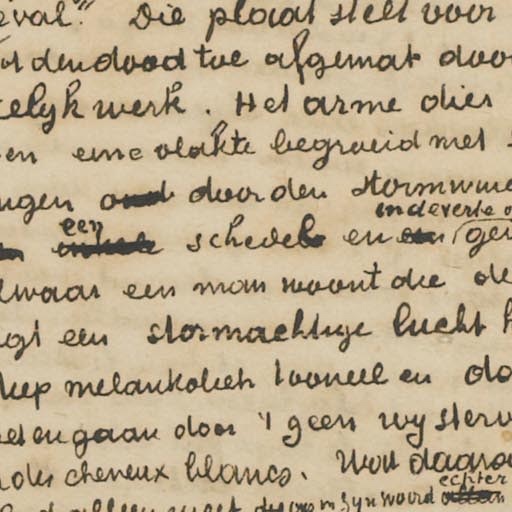 eval." Die plaat stelt voor
ot den dood toe afgemat door
elyk werk. Het arme dier
en eene vlakte begroeid met
ngen door den stormwin
in de verte
een schedel en ge
lwaar een man woont die de
gt een stormachtige lucht
iep melankoliek tooneel en
eten gaan door 't geen wy sterv
des cheveux blancs. Wat daarao
echter
zyn woord